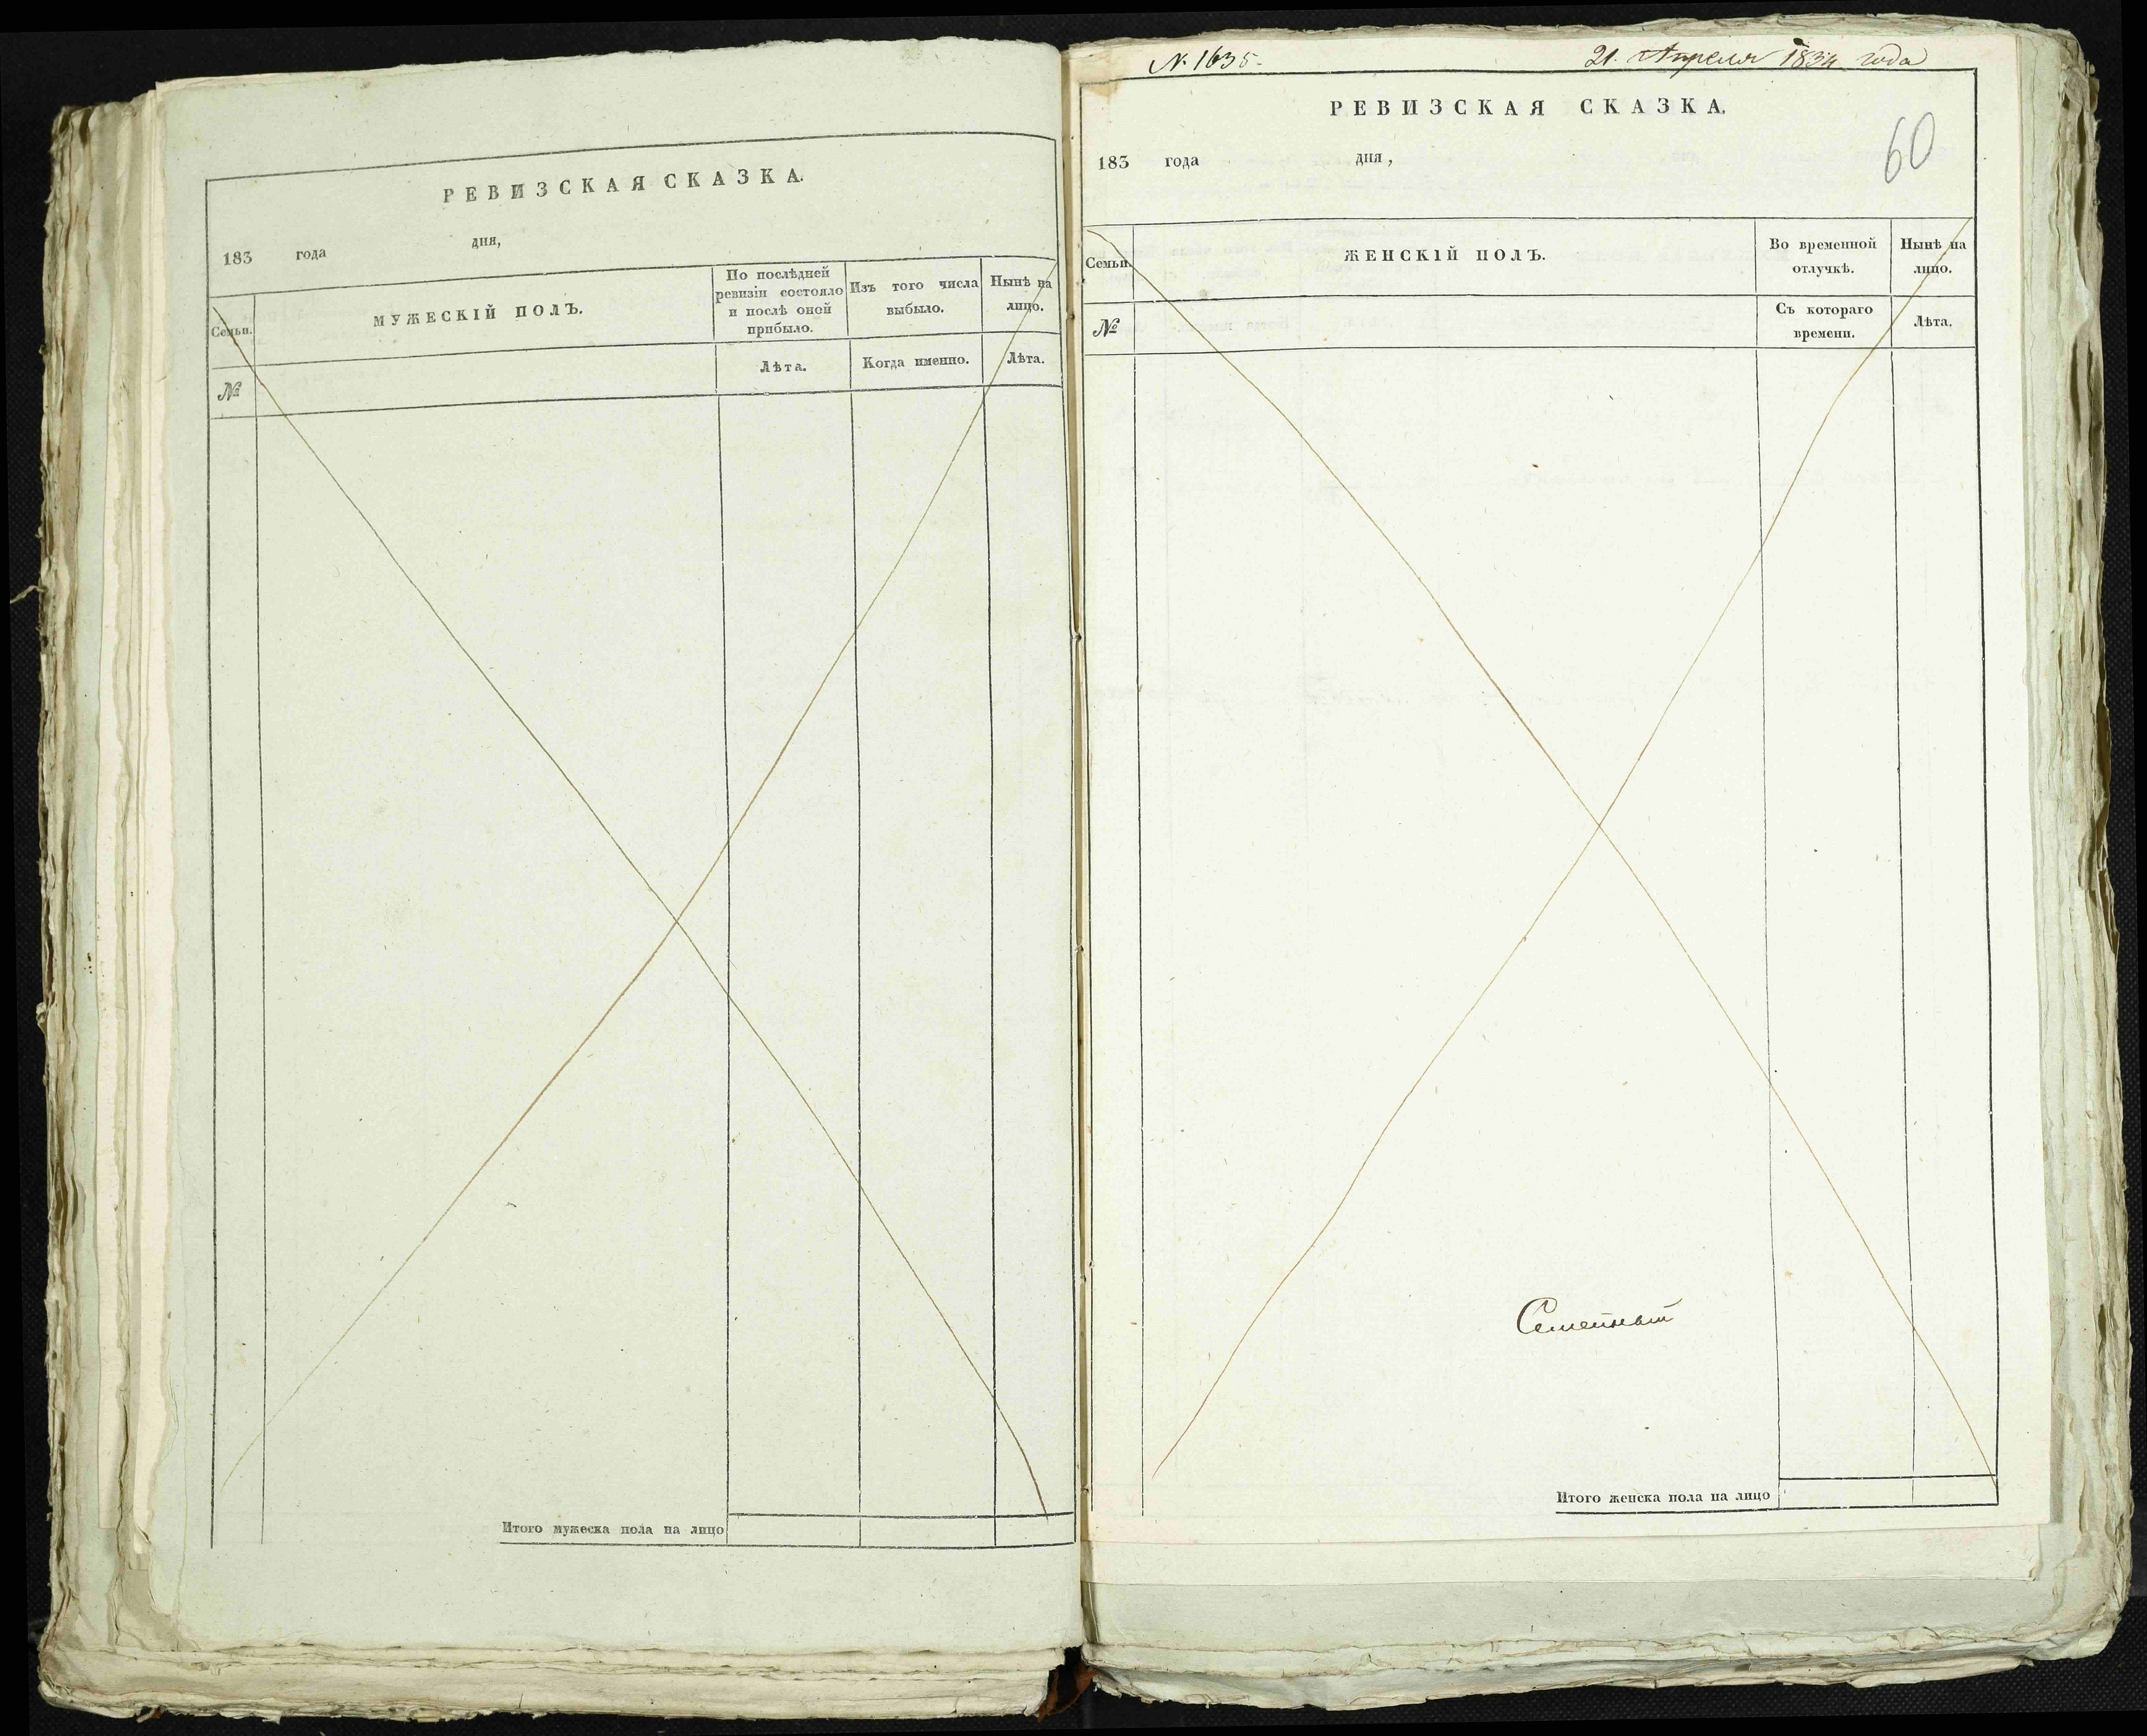 РЕВИЗСКАЯ СКАЗКА.
183 года дня,
Семьи.
МУЖЕСКІЙ ПОЛЪ.
По послѣдней
ревизіи состояло
и послѣ оной
прибыло.
Изъ того числа
выбыло.
Нынѣ на
лицо.
№
Лѣта.
Когда именно.
Лѣта.
Итого мужеска пола на лицо
№ 1635.
21. Апреля 1834 года
РЕВИЗСКАЯ СКАЗКА.
183 года дня,
60
Семьи.
ЖЕНСКІЙ ПОЛЪ.
Во временной
отлучкѣ.
Нынѣ на
лицо.
№
Съ котораго
времени.
Лѣта.
Семейный
Итого женска пола на лицо